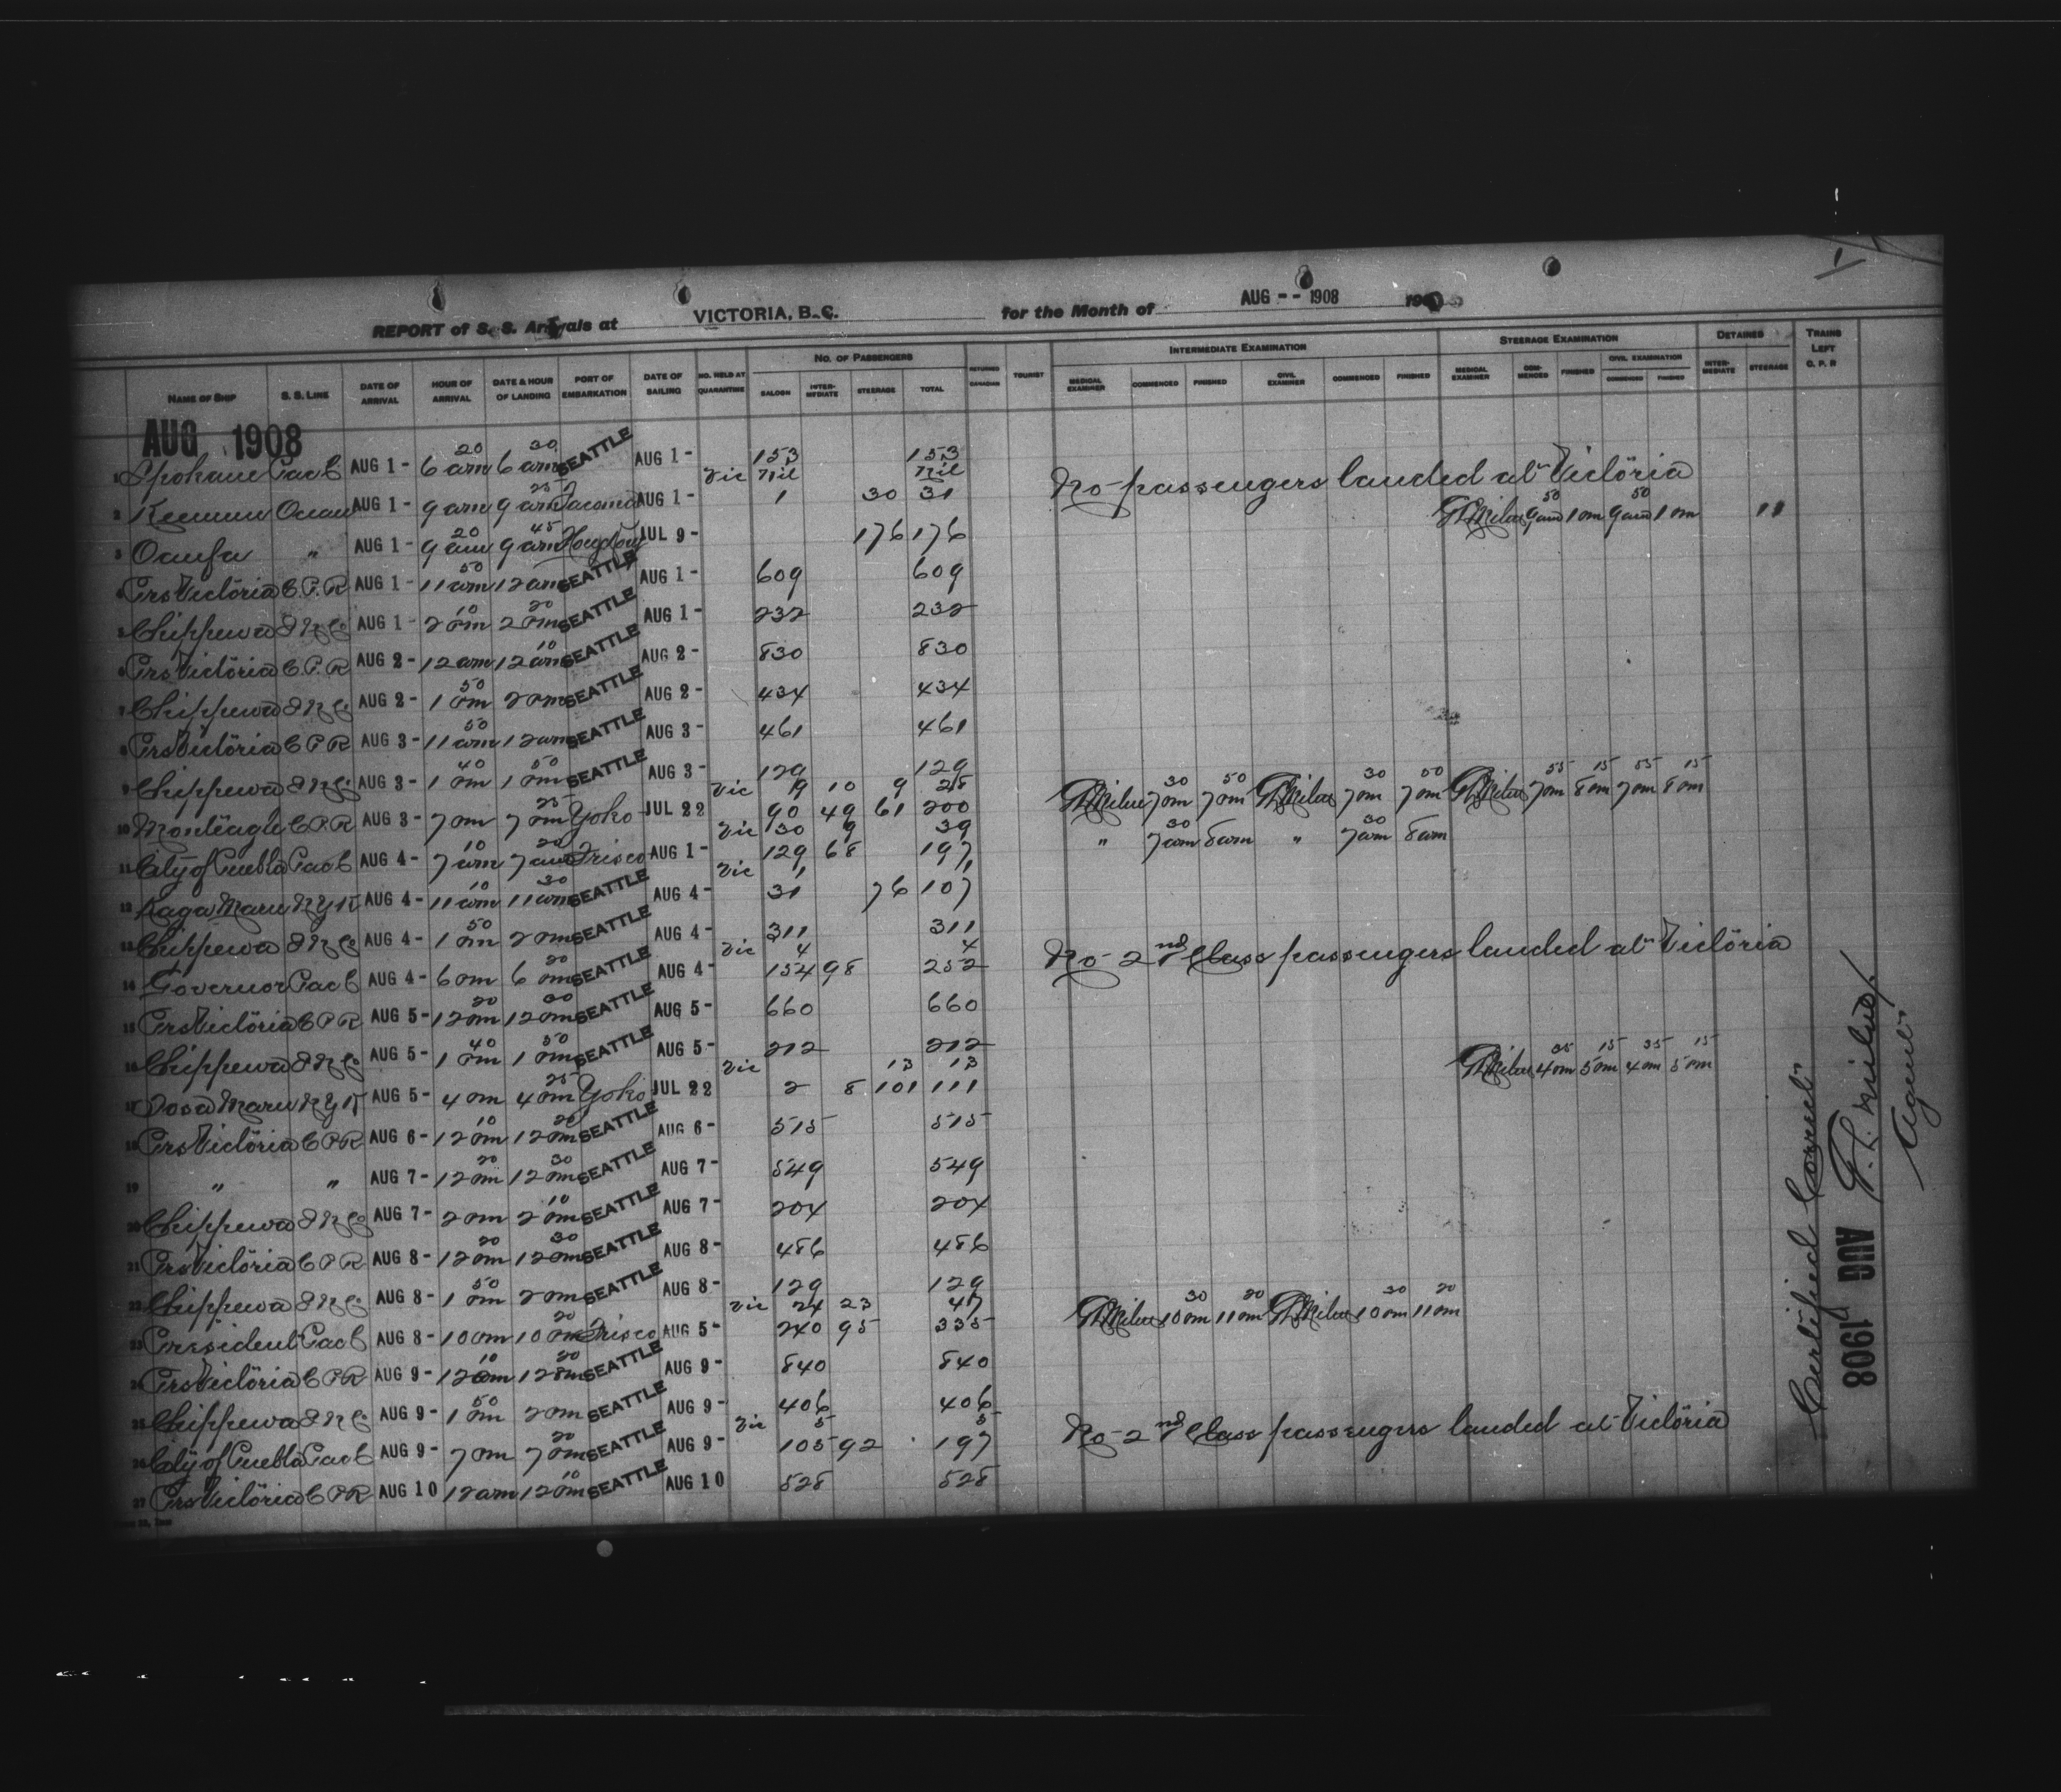 REPORT of S. S. Arrivals at VICTORIA, B.C. for the Month of AUG -- 1908 190
NAME OF SHIP S. S. LINE DATE OF ARRIVAL HOUR OF ARRIVAL DATE & HOUR OF LANDING PORT OF EMBARKATION DATE OF SAILING NO. HELD AT QUARANTINE NO. OF PASSENGERS SALOON INTERMEDIATE STEERAGE TOTAL RETURNED CANADIAN TOURIST INTERMEDIATE EXAMINATION MEDICAL EXAMINER COMMENCED FINISHED CIVIL EXAMINER COMMENCED FINISHED STEERAGE EXAMINATION MEDICAL EXAMINER COMMENCED FINISHED CIVIL EXAMINATION COMMENCED FINISHED DETAINED INTERMEDIATE STEERAGE TRAINS LEFT C. P. R
AUG 1908
1 Spokane Pac C AUG 1- 6 20 am 6 30 am SEATTLE AUG 1- 153 153
Vic nil nil No passengers landed at Victoria
2 Keemun Ocean AUG 1- 9 am 9 25 am Tacoma AUG 1- 1 30 31
3 Oanfa " AUG 1- 9 20 am 9 45 am JUL 9- 176 176 9 50 am 1 pm 9 50 am 1 pm 11
4 Prs Victoria C.P.R AUG 1- 11 50 am 12 am SEATTLE AUG 1- 609 609
5 Chippewa AUG 1- 2 10 pm 2 20 pm SEATTLE AUG 1- 232 232
6 Prs Victoria C.P.R AUG 2- 12 am 12 10 am SEATTLE AUG 2- 830 830
7 Chippewa AUG 2- 1 50 pm 2 pm SEATTLE AUG 2- 434 434
8 Prs Victoria C P R AUG 3- 11 50 am 12 am SEATTLE AUG 3- 461 461
9 Chippewa AUG 3- 1 40 pm 1 50 pm SEATTLE AUG 3- 129 129
Vic 9 10 9 28 G L Milne 7 30 pm 7 50 pm G L Milne 7 30 pm 7 50 pm G L Milne 7 55 pm 8 15 pm 7 55 pm 8 15 pm
10 Monteagle C P R AUG 3- 7 pm 7 25 pm Yoko JUL 22 90 49 61 200
Vic 30 9 39 " 7 30 am 8 am " 7 30 am 8 am
11 City of Puebla Pac C AUG 4- 7 10 am 7 20 am Frisco AUG 1- 129 68 197
Vic 1 1
12 Kaga Maru N Y K AUG 4- 11 10 am 11 30 am SEATTLE AUG 4- 31 76 107
13 Chippewa AUG 4- 1 50 pm 2 pm SEATTLE AUG 4- 311 311
Vic 4 4 No 2nd Class passengers landed at Victoria
14 Governor Pac C AUG 4- 6 pm 6 20 pm SEATTLE AUG 4- 154 98 252
15 Prs Victoria C P R AUG 5- 12 20 pm 12 30 pm SEATTLE AUG 5- 660 660
16 Chippewa AUG 5- 1 40 pm 1 50 pm SEATTLE AUG 5- 212 212
Vic 13 13 G L Milne 4 35 pm 5 15 pm 4 35 pm 5 15 pm
17 Tosa Maru N Y K AUG 5- 4 pm 4 25 pm Yoko JUL 22 2 8 101 111
18 Prs Victoria C P R AUG 6- 12 10 pm 12 20 pm SEATTLE AUG 6- 515 515
19 " " AUG 7- 12 20 pm 12 30 pm SEATTLE AUG 7- 549 549
20 Chippewa AUG 7- 2 pm 2 10 pm SEATTLE AUG 7- 204 204
21 Prs Victoria C P R AUG 8- 12 20 pm 12 30 pm SEATTLE AUG 8- 486 486
22 Chippewa AUG 8- 1 50 pm 2 pm SEATTLE AUG 8- 129 129
Vic 24 23 47 G L Milne 10 30 pm 11 20 pm G L Milne 10 30 pm 11 20 pm
23 President Pac C AUG 8- 10 pm 10 20 pm Frisco AUG 5- 240 95 335
24 Prs Victoria C P R AUG 9- 12 10 pm 12 20 pm SEATTLE AUG 9- 840 840
25 Chippewa AUG 9- 1 50 pm 2 pm SEATTLE AUG 9- 406 406
Vic 5 5 No 2nd Class passengers landed at Victoria
26 City of Puebla Pac C AUG 9- 7 pm 7 20 pm SEATTLE AUG 9- 105 92 197
27 Prs Victoria C P R AUG 10 12 am 12 10 pm SEATTLE AUG 10 528 528
Certified Correct
G. L. Milne
Agent
AUG 1908
1